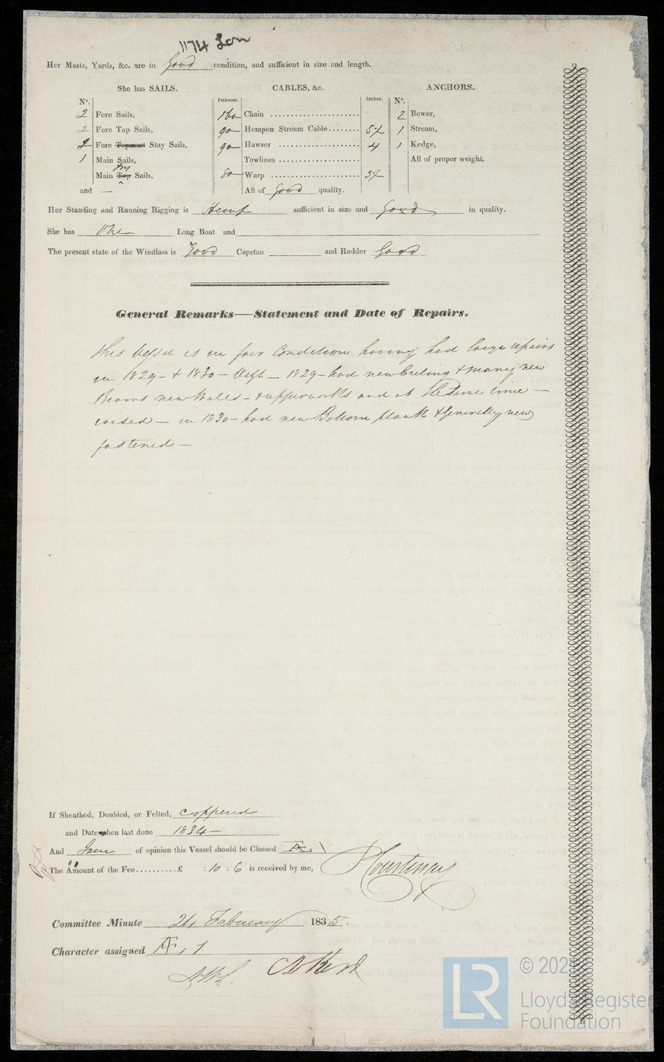 1174 Lon
Her Masts, Yards, &c. are in Good condition, and sufficient in size and length.
She has SAILS. CABLES, &c. ANCHORS.
No. Fathoms. Inches. No.
2 Fore Sails, 160 Chain 2 Bower,
2 Fore Top Sails, 90 Hempen Stream Cable 5½ 1 Stream,
2 Fore Topmast Stay Sails, 90 Hawser 4 1 Kedge,
1 Main Sails, Towlines All of proper weight.
Main Top Try Sails, 80 Warp 3½
and — All of Good quality.
Her Standing and Running Rigging is Hemp sufficient in size and Good in quality.
She has One Long Boat and
The present state of the Windlass is Good Capstan and Rudder Good
General Remarks—Statement and Date of Repairs.
This Vessel is in fair Condition having had large repairs
in 1829 – & 1830 – 1829 – had new Ceiling & many new
Beams new Wales – & upperworks and at the same time –
raised – in 1830 – had new Bottom plank & Generally new
fastened –
If Sheathed, Doubled, or Felted, Coppered
and Date when last done 1834
And I am of opinion this Vessel should be Classed Æ 1
The Amount of the Fee £ : 10 : 6 is received by me, Courtenay
Committee Minute 24 February 1835.
Character assigned Æ 1
© 202
Lloyd's Register
Foundation
LR